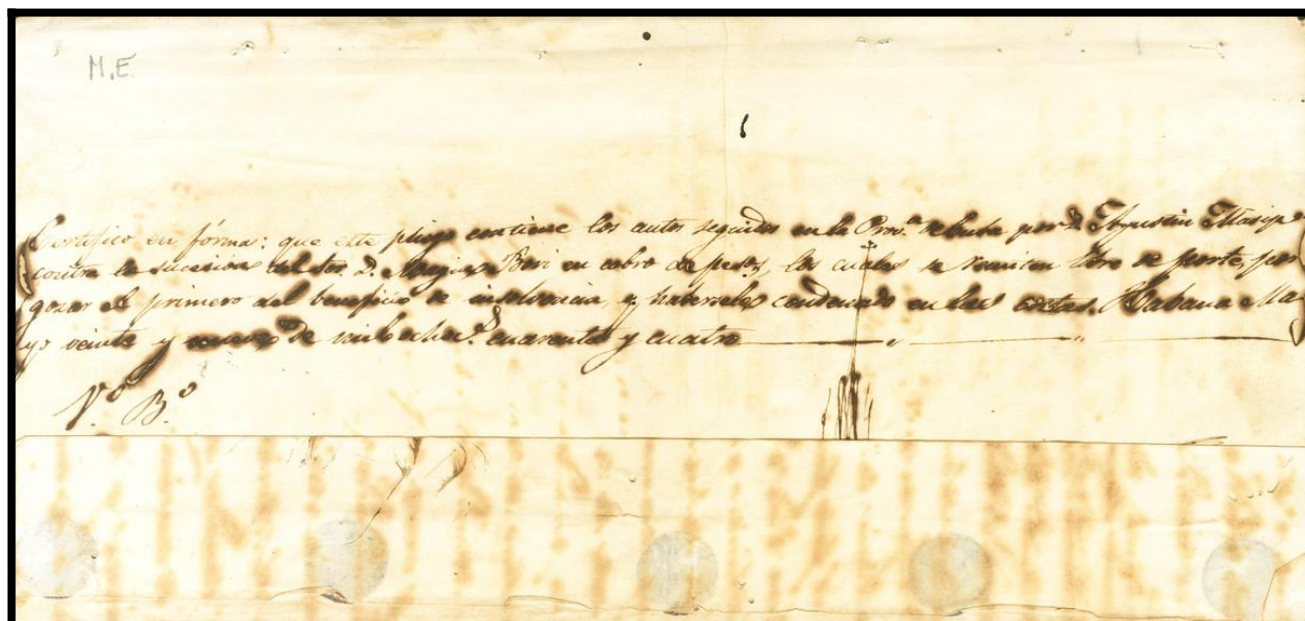 M.E.
Certifico en fórma: que este pliego contiene los autos seguidos en la Prov.ª de Cuba por D. Agustin Masip
contra la sucesion del Sor. D. en cobro de pesos, los cuales se remiten libre de porte, por
gozar el primero del beneficio de insolvencia, y habersele condenado en las costas. Habana Ma-
yo veinte y nueve de mil ochos. cuarenta y cuatro
V.º B.º